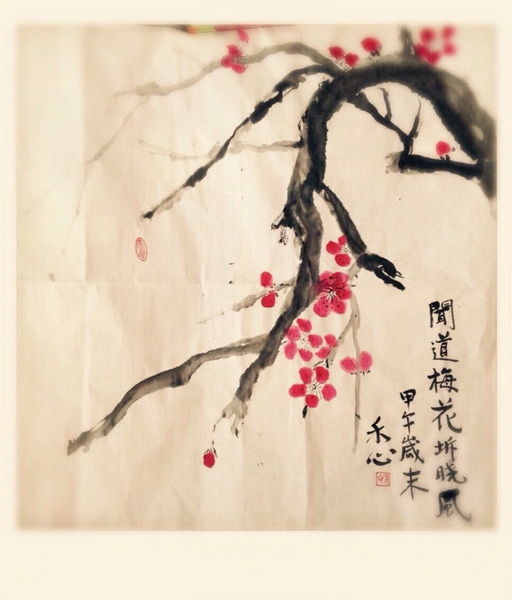 聞道梅花坼晓風
甲午歲末
禾心